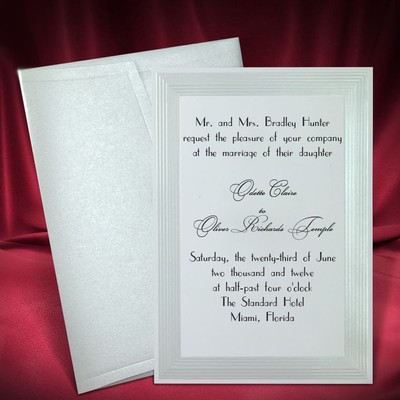 Mr. and Mrs. Bradley Hunter
request the pleasure of your company
at the marriage of their daughter
Odette Claire
to
Oliver Richards Temple
Saturday, the twenty-third of June
two thousand and twelve
at half-past four o'clock
The Standard Hotel
Miami, Florida